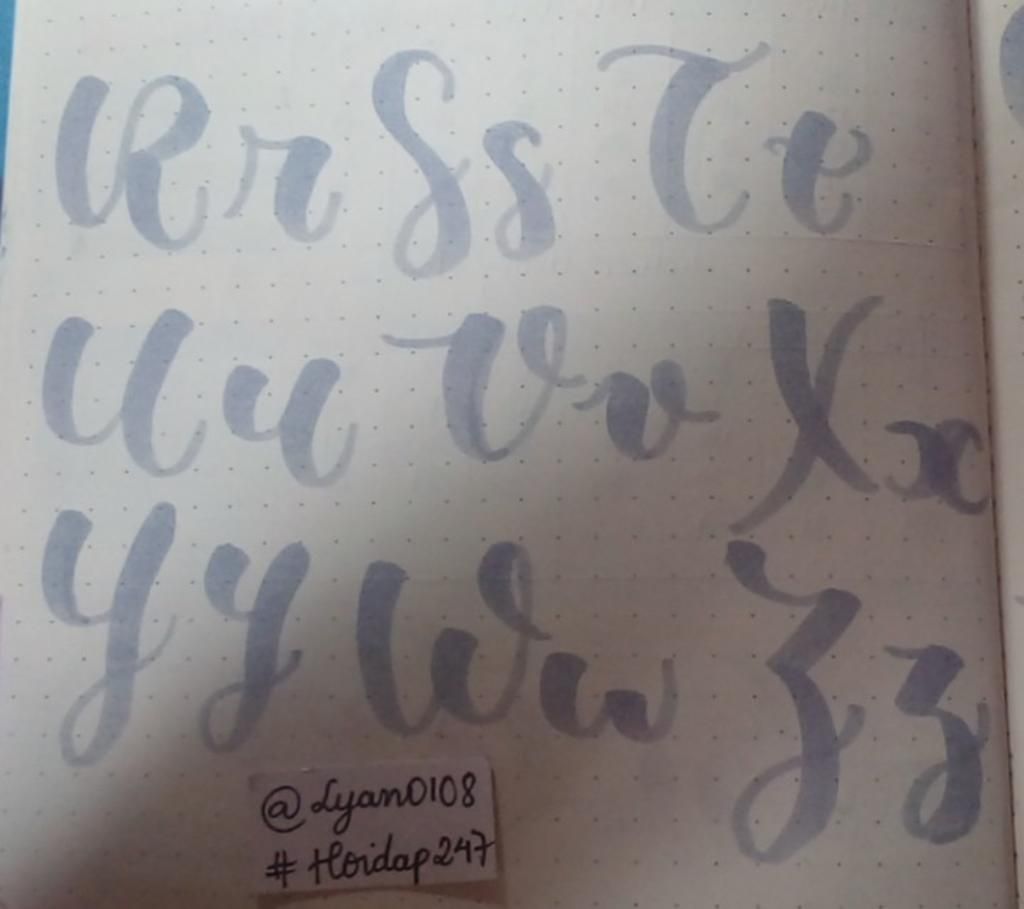 Rr Ss Tt
Uu Vv Xx
Yy Ww Zz
@Lyan0108
#Hoidap247